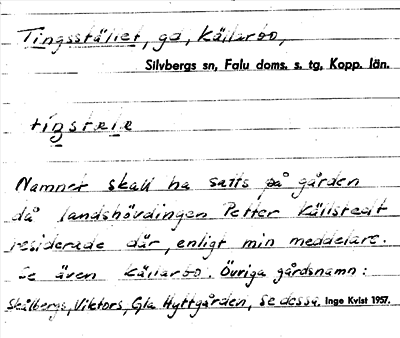 Tingsstället, gd, Källarbo,
Silvbergs sn, Falu doms. s. tg, Kopp. län.
tiŋstælɛ
Namnet skall ha satts på gården
då landshövdingen Petter Källstedt
residerade där, enligt min meddelare.
Se även Källarbo. Övriga gårdsnamn:
Skålbergs, Viktors, Gla Hyttgården, Se dessa. Inge Kvist 1957.